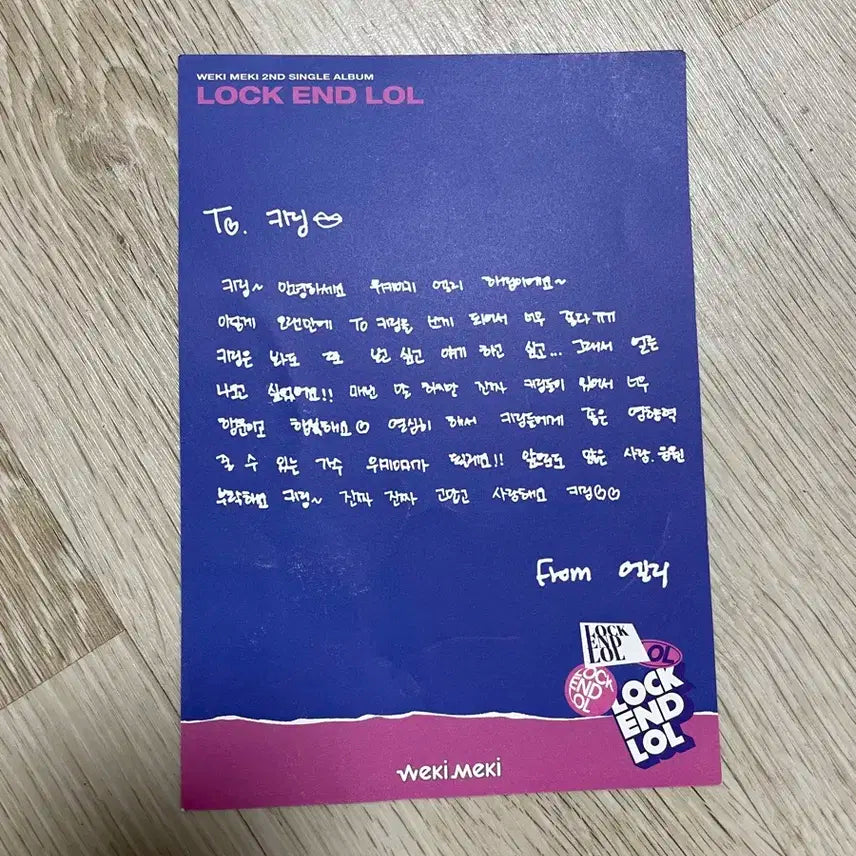 WEKI MEKI 2ND SINGLE ALBUM
LOCK END LOL
To. 키링
키링~ 안녕하세요 위키미키 엘리 해림이에요~
이렇게 오랜만에 To 키링을 쓰게 되어서 너무 좋다ㅠㅠ
키링은 봐도 또 보고 싶고 얘기 하고 싶고... 그래서 얼른
나오고 싶었어요!! 매번 말 하지만 진짜 키링들이 있어서 너무
행복해요 열심히 해서 키링들에게 좋은 영향력
줄 수 있는 가수 위키미키가 될게요!! 앞으로도 많은 사랑.응원
부탁해요 키링~ 진짜 진짜 고맙고 사랑해요 키링
From 엘리
LOCK END LOL
OL
LOCK END OL
LOCK
END
LOL
weki meki